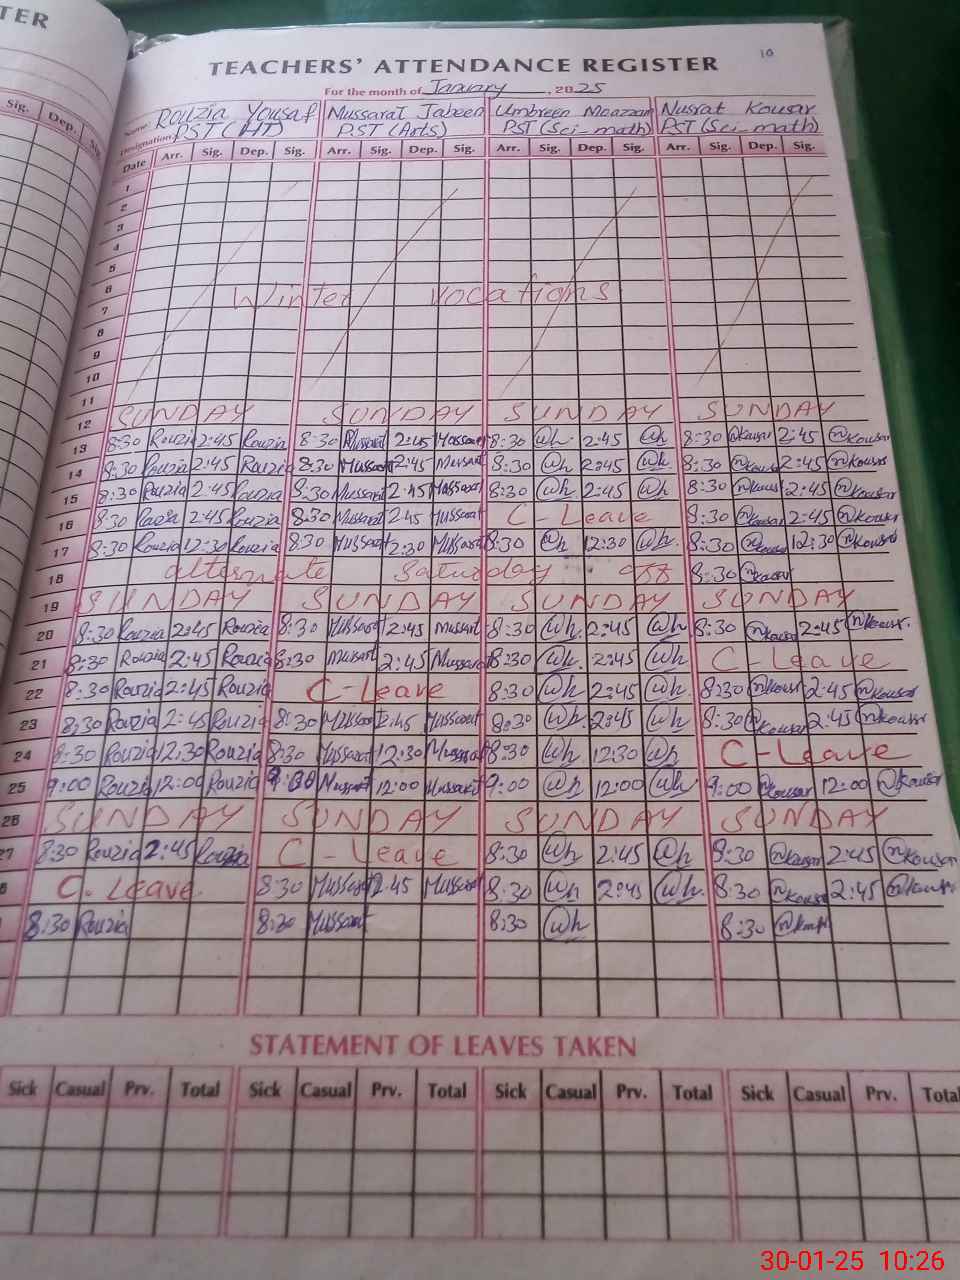 TER
10
TEACHERS' ATTENDANCE REGISTER
For the month of January, 2025
Name Rouzia Yousaf Mussarat Jabeen Umbreen Moazzam Nusrat Kousar
Designation PST (HT) PST (Arts) PST (Sci-math) PST (Sci-math)
Sig. Dep. Sig
Date Arr. Sig. Dep. Sig. Arr. Sig. Dep. Sig. Arr. Sig. Dep. Sig. Arr. Sig. Dep. Sig.
1
2
3
4
5
6
Winter vocations
7
8
9
10
11
12 SUNDAY SUNDAY SUNDAY SUNDAY
13 8:30 Rouzia 2:45 Rouzia 8:30 Mussarat 2:45 Mussarat 8:30 2:45 8:30 Nkousar 2:45 Nkousar
14 8:30 Rouzia 2:45 Rouzia 8:30 Mussarat 2:45 Mussarat 8:30 2:45 8:30 Nkousar 2:45 Nkousar
15 8:30 Rouzia 2:45 Rouzia 8:30 Mussarat 2:45 Mussarat 8:30 2:45 8:30 Nkousar 2:45 Nkousar
16 8:30 Rouzia 2:45 Rouzia 8:30 Mussarat 2:45 Mussarat C-Leave 8:30 Nkousar 2:45 Nkousar
17 8:30 Rouzia 12:30 Rouzia 8:30 Mussarat 2:30 Mussarat 8:30 12:30 8:30 Nkousar 12:30 Nkousar
18 alternate Saturday off 8:30 Nkousar
19 SUNDAY SUNDAY SUNDAY SUNDAY
20 8:30 Rouzia 2:45 Rouzia 8:30 Mussarat 2:45 Mussarat 8:30 2:45 8:30 Nkousar 2:45 Nkousar
21 8:30 Rouzia 2:45 Rouzia 8:30 Mussarat 2:45 Mussarat 8:30 2:45 C-Leave
22 8:30 Rouzia 2:45 Rouzia C-Leave 8:30 2:45 8:30 Nkousar 2:45 Nkousar
23 8:30 Rouzia 2:45 Rouzia 8:30 Mussarat 2:45 Mussarat 8:30 2:45 8:30 Nkousar 2:45 Nkousar
24 8:30 Rouzia 12:30 Rouzia 8:30 Mussarat 12:30 Mussarat 8:30 12:30 C-Leave
25 9:00 Rouzia 12:00 Rouzia 9:00 Mussarat 12:00 Mussarat 9:00 12:00 9:00 Nkousar 12:00 Nkousar
26 SUNDAY SUNDAY SUNDAY SUNDAY
27 8:30 Rouzia 2:45 Rouzia C-Leave 8:30 2:45 8:30 Nkousar 2:45 Nkousar
8 C-Leave 8:30 Mussarat 2:45 Mussarat 8:30 2:45 8:30 Nkousar 2:45 Nkousar
8:30 Rouzia 8:30 Mussarat 8:30 8:30
STATEMENT OF LEAVES TAKEN
Sick Casual Prv. Total Sick Casual Prv. Total Sick Casual Prv. Total Sick Casual Prv. Total
30-01-25 10:26